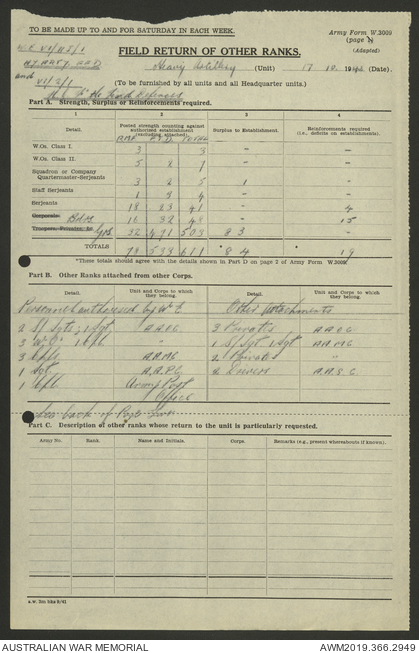 TO BE MADE UP TO AND FOR SATURDAY IN EACH WEEK.
Army Form W.3009
(page 1)
(Adapted)
FIELD RETURN OF OTHER RANKS.
Heavy Artillery (Unit) 17.10.1942 (Date).
and
VI/2/1
(To be furnished by all units and all Headquarter units.)
Part A. Strength, Surplus or Reinforcements required.
1 2 3 4
Detail. Posted strength counting against authorised establishment (excluding attached). Surplus to Establishment. Requirements (i.e., deficits on establishment).
TOTAL
W.Os. Class I. 3 3 - -
W.Os. Class II. 5 2 7 - -
Squadron or Company Quartermaster-Serjeants 3 2 5 1 -
Staff Serjeants 1 3 4 - -
Serjeants 18 23 41 - 4
Corporals Bdrs. 16 32 48 - 15
Gnrs 32 471 503 83
TOTALS 78 533 611 * 84 * 19
*These totals should agree with the details shown in Part D on page 2 of Army Form W.3009.
Part B. Other Ranks attached from other Corps.
Detail. Unit and Corps to which they belong. Detail. Unit and Corps to which they belong.
Personnel authorised by W.E. Other attachments
2 S/Sgts, 1 Sgt A.A.O.C. 3 Privates A.A.O.C.
1 Cpl " 1 S/Sgt 1 Sgt A.A.M.C.
3 Cpls A.A.M.C. 2 Privates "
1 Sgt A.A.P.C. 2 Drivers A.A.S.C.
1 Cpl Army Post
Office
See back of Page Two
Part C. Description of other ranks whose return to the unit is particularly requested.
Army No. Rank. Name and Initials. Corps. Remarks (e.g., present whereabouts if known).
AUSTRALIAN WAR MEMORIAL AWM2019.366.2949